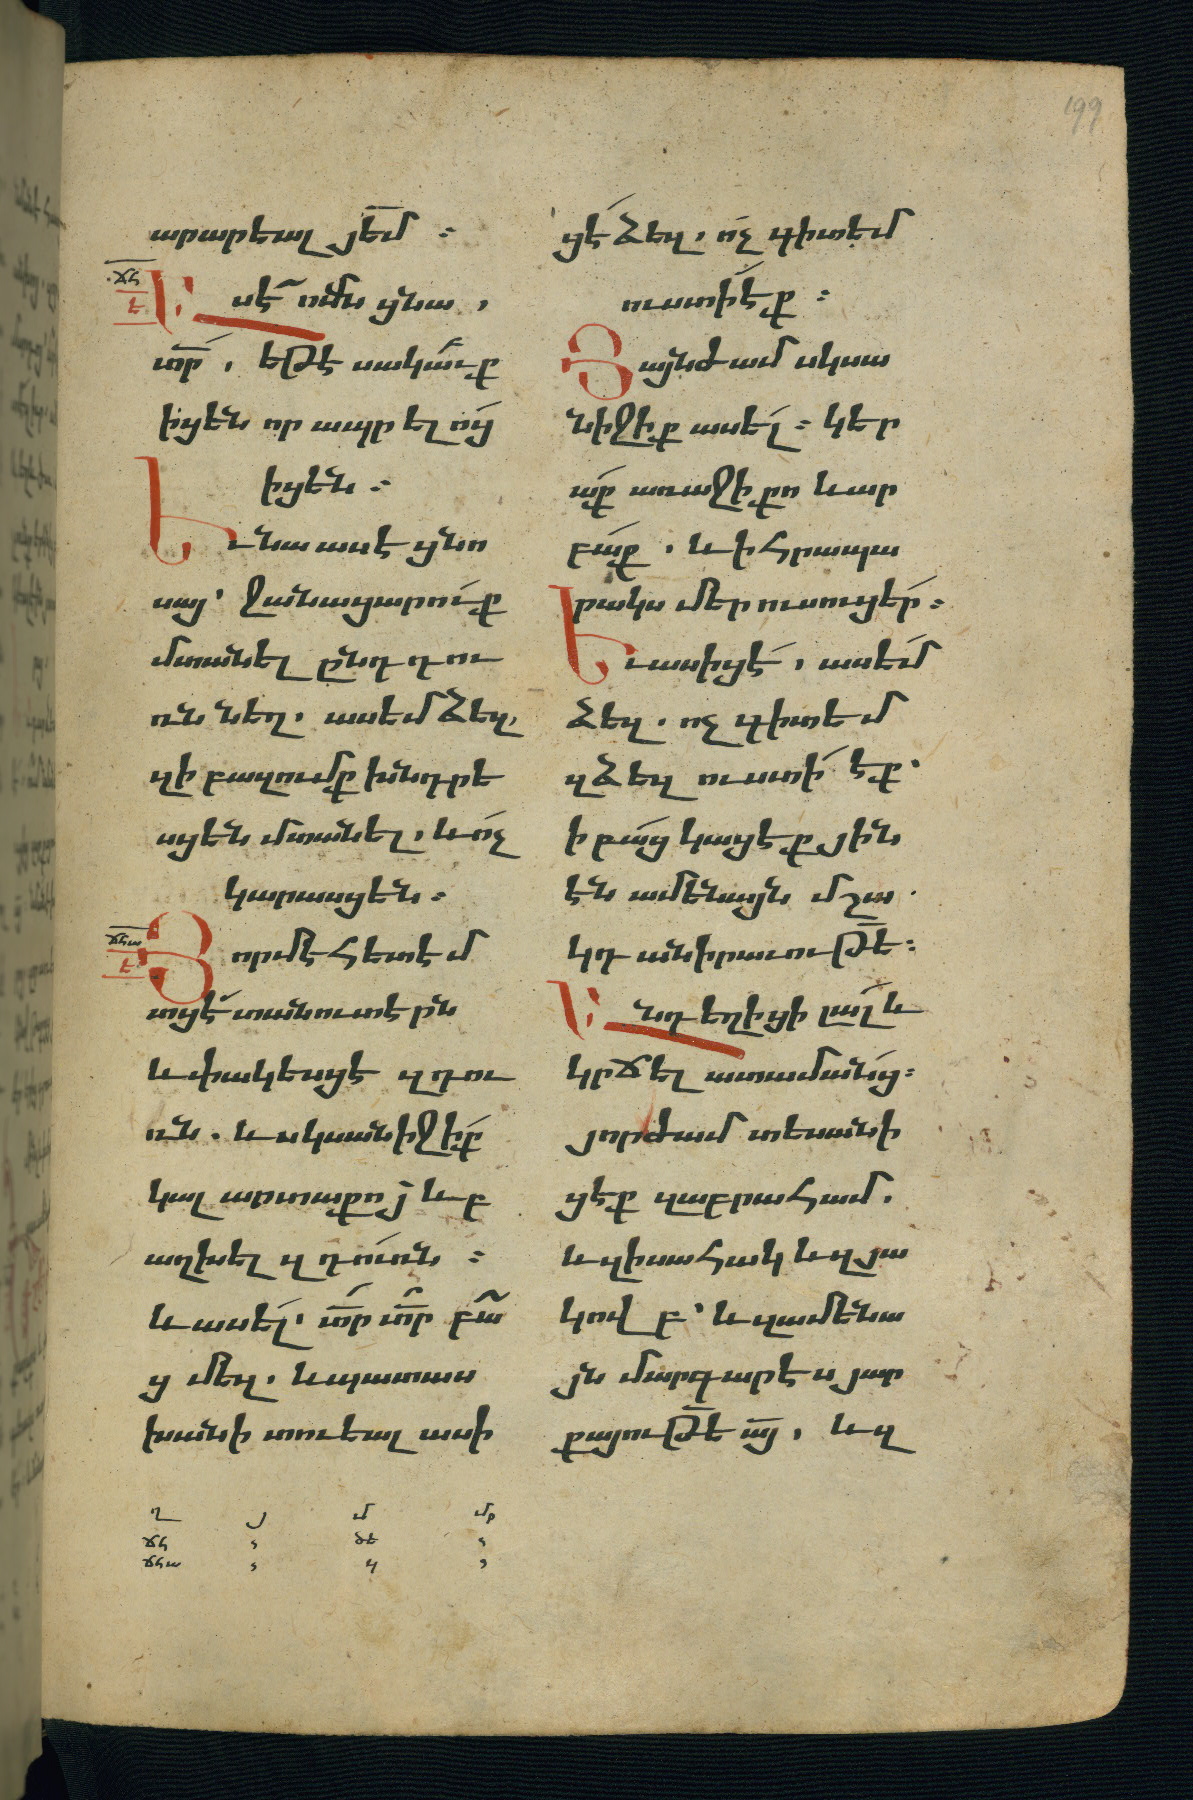 199
արարեալ յե̅մ ։
ճհ
է
Ասէ՞ ոմն ցնա ,
տ̅ր , եթէ սակաւք
իցեն որ ապրելոց
իցեն ։
Եւ նա ասէ ցնո
սայ՝ ջանացարուք
մտանել ընդ դու
ռն նեղ. ասեմ ձեզ,
զի բազումք խնդրե
սցեն մտանել, և ոչ
կարասցեն ։
ճհա
Յորմէ հետէ մ
տցէ տանուտէրն
և փակեսցէ զդու
ռն. և սկսանիջիք
կալ արտաքոյ և բ
աղխել զդուռն ։
և ասել. տ̅ր տ̅ր բա
ց մեզ. և պատաս
խանի տուեալ ասի
ցէ ձեզ. ոչ գիտեմ
ուստի էք ։
Յայնժամ սկսա
նիջիք ասել ։ կեր
աք առաջի քո և ար
բաք . և ի հրապա
րակս մեր ուսուցեր ։
Եւ ասիցէ , ասեմ
ձեզ. ոչ գիտեմ
զձեզ ուստի էք՝
ի բաց կացէք յին
էն ամենայն մշա
կդ անիրաւութ̅ե ։
Անդ եղիցի լալ և
կրճել ատամանց ։
յորժամ տեսանի
ցէք զաբրահամ.
և զիսահակ և զյա
կովբ՝ և զամենա
յն մարգարէս յար
քայութ̅ե ա̅յ , և զ
ճհ ծէ
ճհա կ